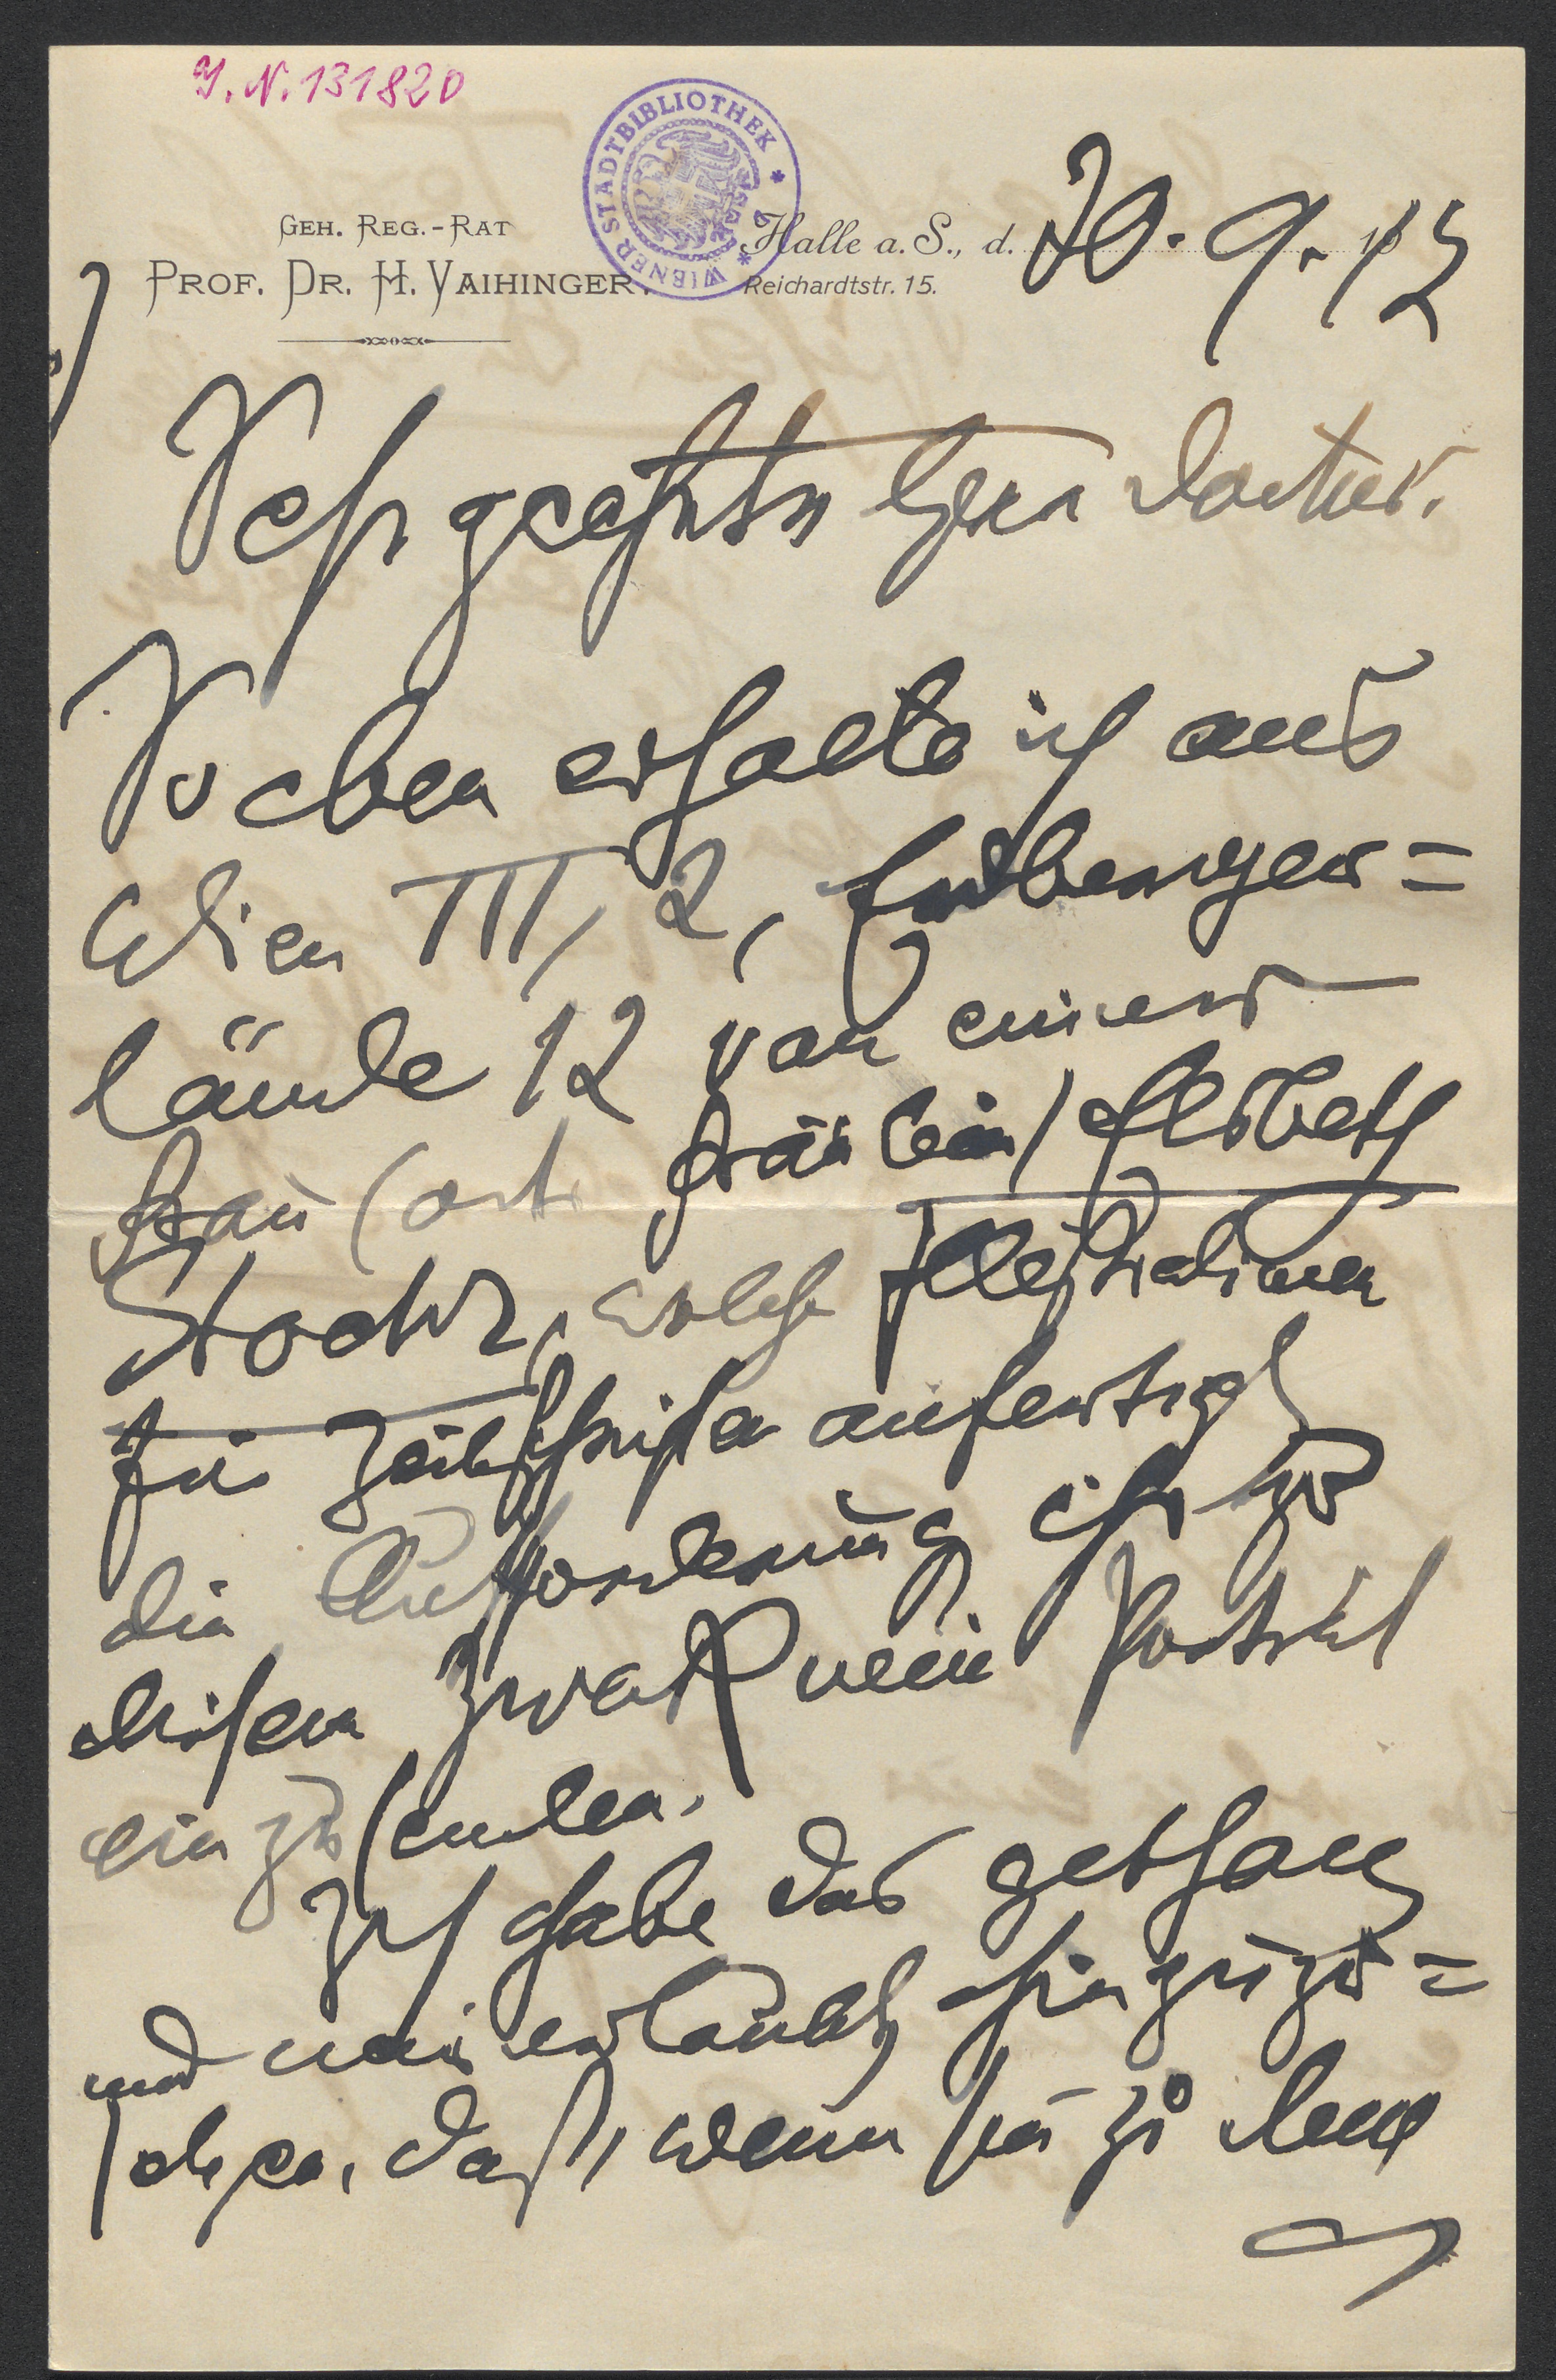 I. N. 131820
WIENER STADTBIBLIOTHEK
GEH. REG.-RAT
PROF. DR. H. VAIHINGER.
Halle a. S., d. 30. 9. 12
Reichardtstr. 15.
Sehr geehrter Herr Doctor.
Soeben erhalte ich aus
Wien III, 2, Erdberger=
lände 12 von einer
Frau (oder Fräulein) Elsbeth
Stochr, welche Illustrationen
für Zeitschriften anfertigt
die Aufforderung, ihr zu
diesem Zweck mein Porträt
einzusenden.
Ich habe das gethan
und mir erlaubt, hinzuzu=
setzen, daß, wenn sie zu dem